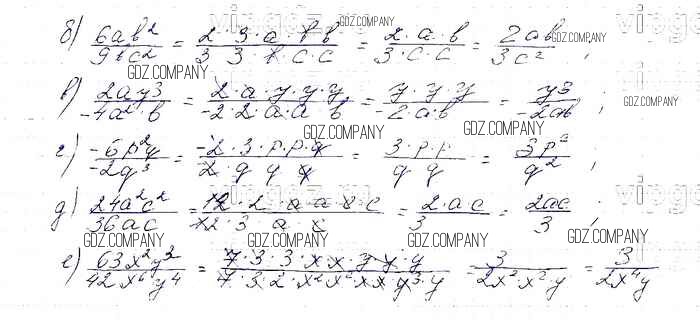 б) 6ab²/9bc² = 2·3·a·b·b/3·3·b·c·c = 2·a·b/3·c·c = 2ab/3c² ;
в) 2ay³/-4a²·b = 2·a·y·y·y/-2·2·a·a·b = y·y·y/-2·a·b = y³/-2ab ;
г) -6p²q/-2q³ = -2·3·p·p·q/-2·q·q·q = 3·p·p/q·q = 3p²/q² ;
д) 24a²c²/36ac = 12·2·a·a·c·c/12·3·a·c = 2·ac/3 = 2ac/3 ;
е) 63x²y³/42x⁶y⁴ = 7·3·3·x·x·y·y·y/7·3·2·x²·x²·x·x·y³·y = 3/2x²·x²·y = 3/2x⁴y
GDZ.COMPANY
GDZ.COMPANY
GDZ.COMPANY
GDZ.COMPANY
GDZ.COMPANY
GDZ.COMPANY
GDZ.COMPANY
GDZ.COMPANY
GDZ.COMPANY
GDZ.COMPANY
GDZ.COMPANY
GDZ.COMPANY
GDZ.COMPANY